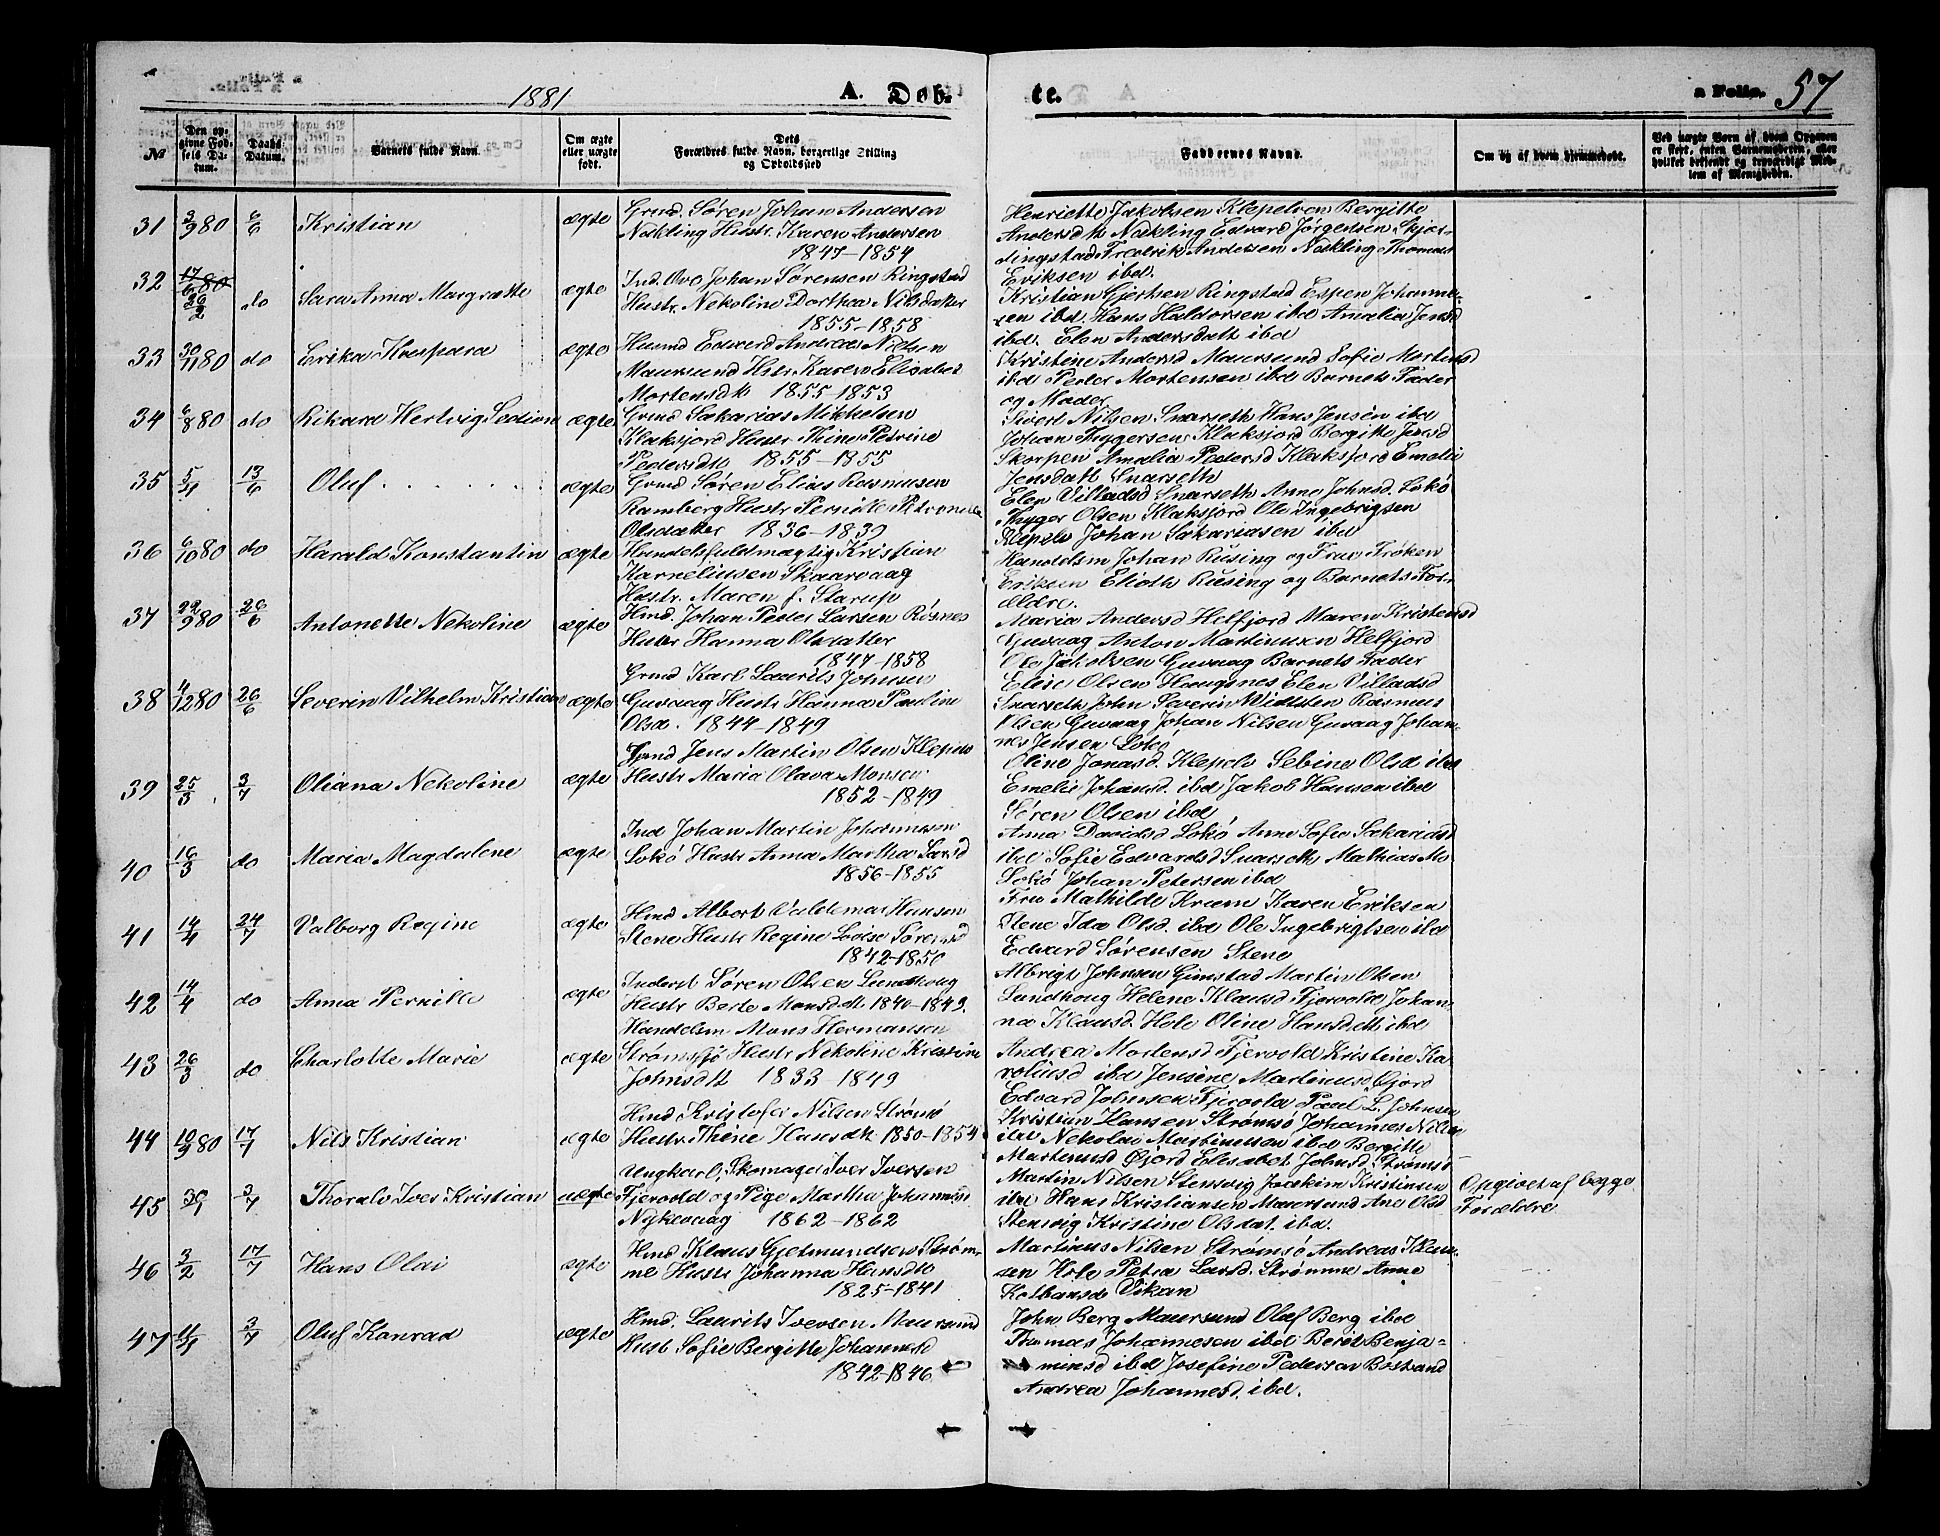 1881
A. Døb-
te.
a Folio. 57
№
Den opgivne Fødsels Datum.
Daabs Datum.
Barnets fulde Navn.
Om ægte eller uægte født.
Dets Forældres fulde Navn, borgerlige Stilling og Opholdssted
Faddernes Navne.
Om og af hvem hjemmedøbt.
Ved uægte Børn af hvem Opgaven er skeet, enten Barnemoderen, eller hvilket bekjendt og troværdigt Medlem af Menigheden.
31 3/9 80 6/6 Kristian ægte
Grmd. Søren Johan Andersen
Nakling Hustr. Karen Andersen
1847-1854
Henriette Jakobsen Klepelven Bergitte
Andersdtr Nakling Edvard Jørgensen Skjør-
dingstad Fredrik Andersen Nakling Thomas
Eriksen ibd.
32 17/6 80 26/2 do Sara Anna Margrethe ægte
Ind. Ove Johan Sørensen Ringstad
Hustr. Nekoline Dorthea Nilsdatter
1855-1858
Kristian Gjertsen Ringstad Espen Johanne-
sen ibd. Hans Haldorsen ibd Amalia Jensd
ibd. Elen Andersdatt ibd
33 30/11 80 do Erika Kaspara ægte
Husmd Edvard Andreas Nielsen
Maursund Hustr Karen Elisabet
Mortensdtr 1855-1853
Kristine Andersd Maursund Sofie Mortensd
ibd Peder Mortensen ibd Barnets Fader
og Moder
34 6/8 80 do Rikard Hertvig Sedion ægte
Grmd Sakarias Mikkelsen
Klaksjord Hustr Thine Petrine
Pedersdtr 1855-1855
Sivert Nilsen Snarseth Hans Jensen ibd
Johan Thygersen Klaksjord Bergitte Jensd
Skorpen Amalia Pedersd Klaksjord Emelie
Jensdatt Snarseth
35 5/4 13/6 Oluf ægte
Grmd Søren Elias Rasmusen
Ramberg Hustr Pernille Petronella
Olsdatter 1836-1839
Elen Villadsd Snarseth Anne Johnsd. Lokø
Thyger Olsen Klaksjord Ole Ingebrigtsen
Klepelv Johan Sakariasen ibd
36 6/10 80 do Harald Konstantin ægte
Handelsfuldmægtig Kristian
Karneliussen Skaarvaag
Hustr. Maren f. Starup
Handelsm Johan Rusing og Frue Frøken
Eriksen Elioth Rusing og Barnets For-
ældre.
37 22/9 80 26/6 Antonette Nekoline ægte
Hmd. Johan Peder Larsen Røsnes
Hustr Hanna Olsdatter
1847-1858
Maria Andersd Helfjord Maren Kristensd
Guvaag Anton Martinusen Helfjord
Ole Jakobsen Guvaag Barnets Fader
38 4/12 80 26/6 Severin Vilhelm Kristian ægte
Grmd Karl Laurits Johnsen
Guvaag Hustr Hanna Pauline
Olsd. 1844-1849
Elise Olsen Haugsnes Elen Villadsd
Snarseth John Severin Widsten Rasmus
Olsen Guvaag Johan Nilsen Guvaag Johan-
nes Jensen Lokø
39 25/3 3/7 Oliana Nekoline ægte
Grmd Jens Martin Olsen Klepelv
Hustr Maria Olava Monsen
1852-1849
Oline Jonasd Klepelv Sebine Olsd ibd
Emelie Johansd. ibd Jakob Hansen ibd
Søren Olsen ibd
40 16/3 do Maria Magdalene ægte
Ind Johan Martin Johannesen
Lokø Hustr Anna Martha Larsd
1856-1855
Anna Davidsd Lokø Anne Sofie Sakariasd
ibd Sofie Edvardsd Snarseth Mathias Mo
Lokø Johan Petersen ibd
41 14/4 24/7 Valborg Regine ægte
Hmd Albert Valdemar Hansen
Stene Hustr Regine Lovise Sørensd
1842-1850
Fru Mathilde Krum Karen Eriksen
Stene Ida Olsd. ibd Ole Ingebrigtsen ibd
Edvard Sørensen Stene
42 14/4 do Anna Pernille ægte
Inderst Søren Olsen Lundhoug
Hustr Berte Monsdtr 1840-1849.
Albrigt Johnsen Gimstad Martin Olsen
Lundhoug Helene Klausd Fjervold Johan-
na Klausd. Hole Oline Hansdatt ibd
43 26/3 do Charlotte Marie ægte
Handelsm Mons Hermansen
Strømsjø Hustr Nekoline Kristine
Johnsdtr 1833-1849
Andrea Mortensd Fjervold Kristine Ka-
rolusd ibd Jensine Martinusd Øjord
Edvard Johnsen Fjervold Paul L. Johnsen
44 10/9 80 17/7 Nils Kristian ægte
Hmd Kristofer Nilsen Strømsø
Hustr. Thine Hansdtr 1850-1854
Kristian Hansen Strømsø Johannes Nilsen
ibd Nekolai Martinusen ibd Bergitte
Martinusd Øjord Elisabet Johnsd. Strømsø
45 30/1 3/7 Thoralv Iver Kristian uægte
Ungkarl, Skomager Iver Iversen
Fjervold og Pige Martha Johannesd
Nykvaag 1862-1862
Martin Nilsen Stensvig Joakim Kristensen
ibd Hans Kristiansen Maursund Ane Olsd
Stensvig Kristine Olsdat. ibd.
Opgivet af begge
Forældre
46 3/2 17/7 Hans Olai ægte
Hmd Klaus Gjetmundsen Strøm-
me Hustr Johanna Hansdtr
1825-1841
Martinus Nilsen Strømsø Andreas Klau-
sen Hole Petra Larsd. Strømme Anne
Kolbansd Vikan
47 11/3 3/7 Oluf Konrad ægte
Hmd. Laurits Iversen Maursund
Hust Sofie Bergitte Johannesd
1842-1846
John Berg Maursund Oluf Berg ibd
Thomas Johannesen ibd Berit Benja-
minsd ibd Josefine Pedersen Bøstrand
Andrea Johannesd. ibd.